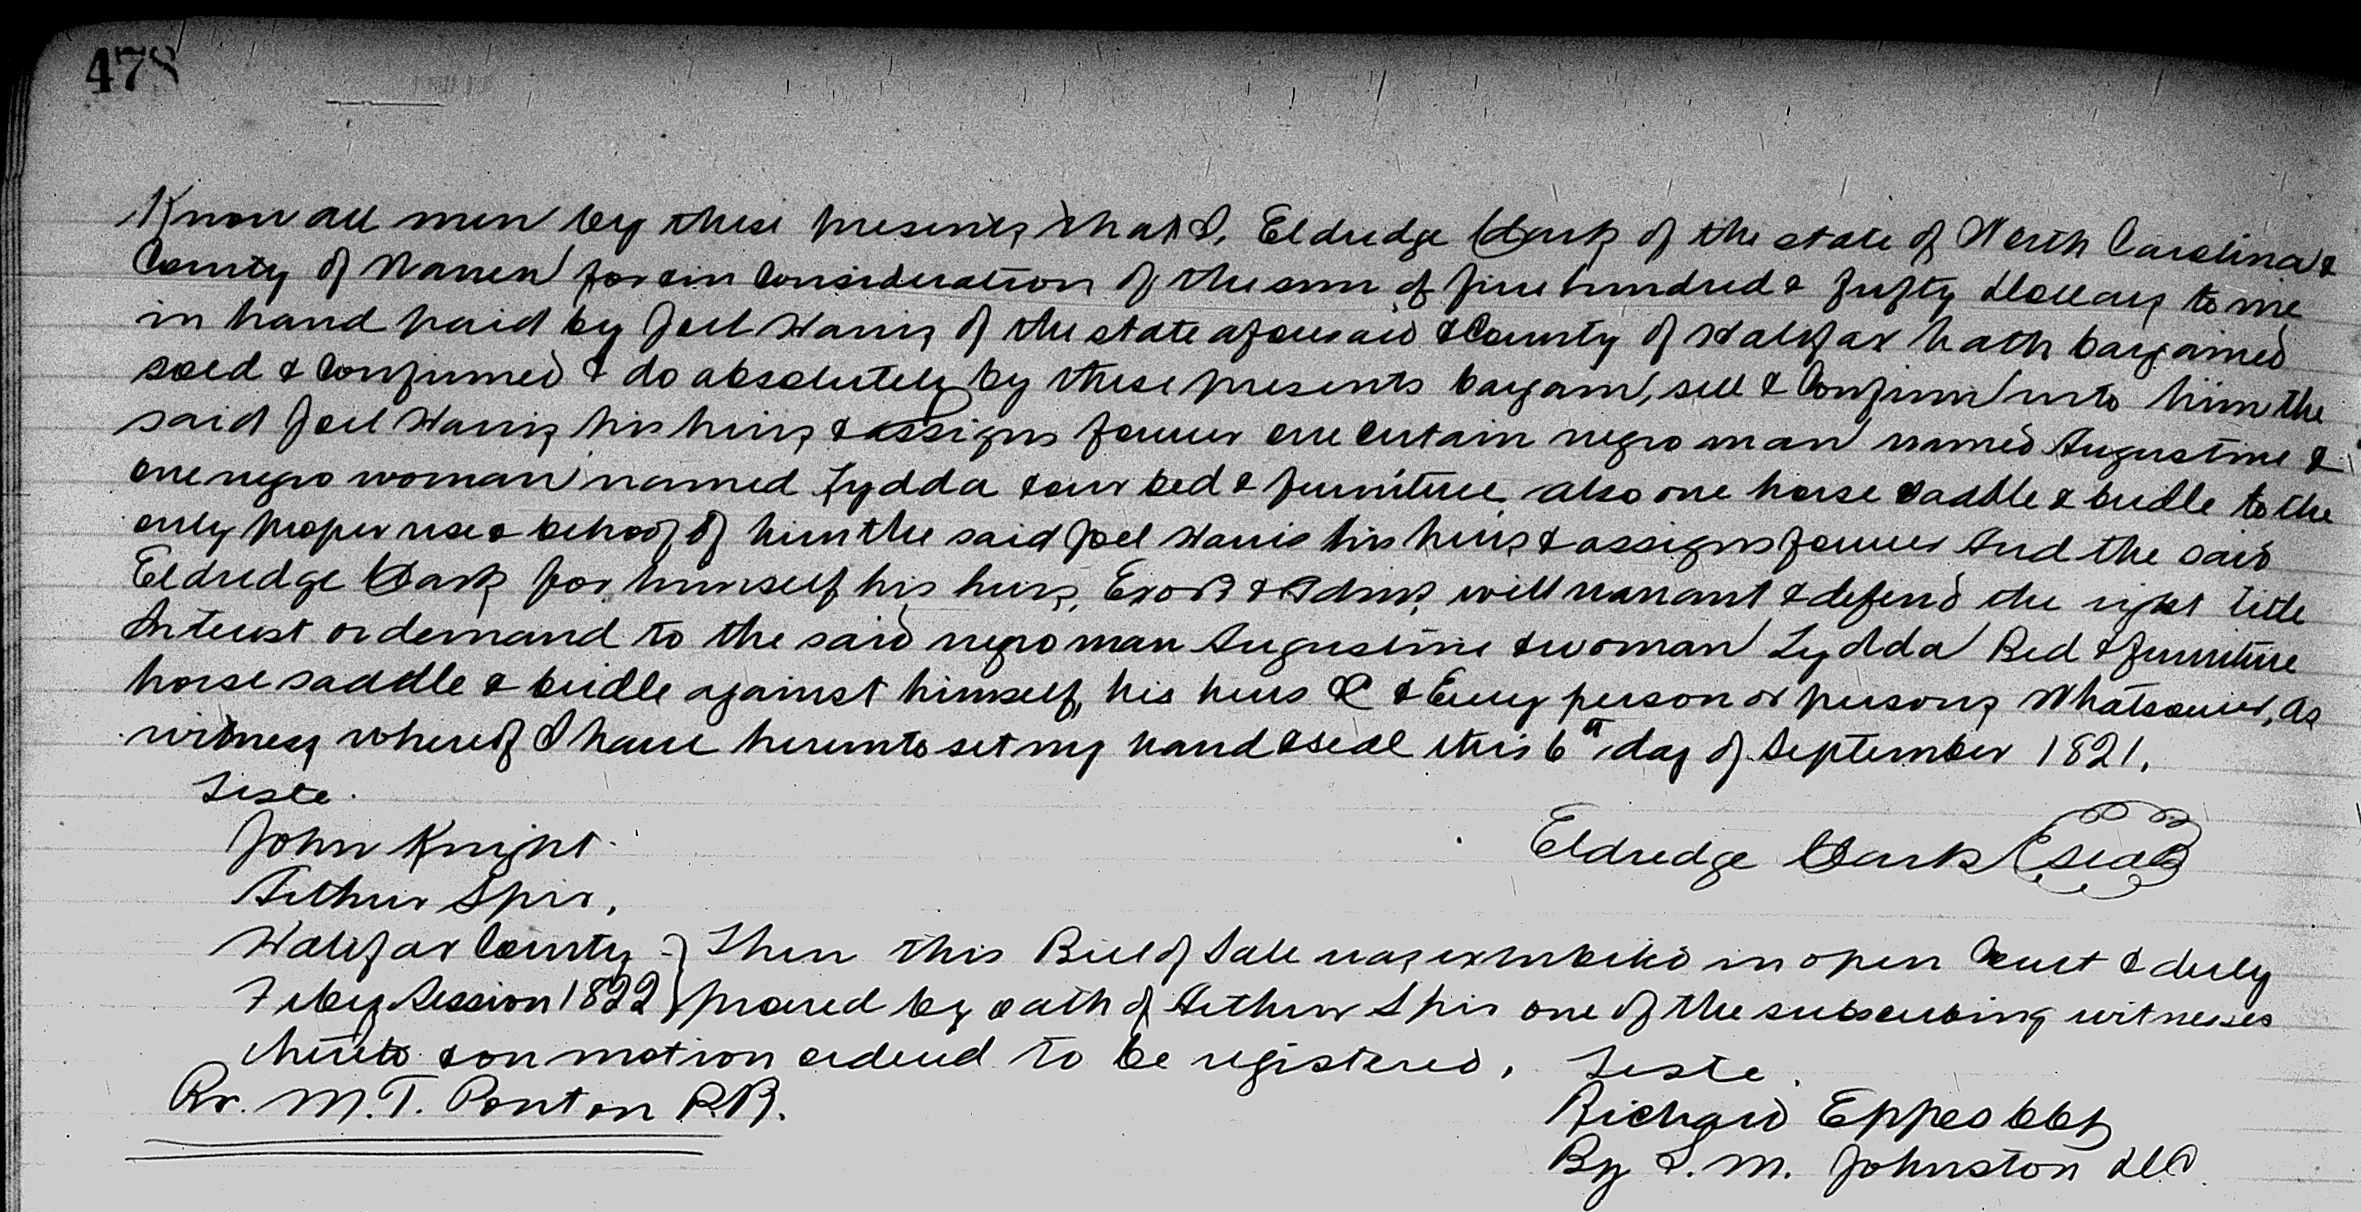 478
Know all men by these presents that I, Eldredge Clark of the state of North Carolina &
County of Warren for & in Consideration of the sum of five hundred & fufty Dollars to me
in hand paid by Joel Harris of the state aforesaid & County of Halifax hath bargained
sold & Confirmed & do absolutely by these presents bargain, sell & Confirm unto him the
said Joel Harris his heirs & assigns forever one certain negro man named Augustine &
one negro woman named Lydda & one bed & furniture also one horse saddle & bridle to the
only proper use & behoof of him the said Joel Harris his heirs & assigns forever And the said
Eldredge Clark for himself his heirs, Exors & Adms, will warrant & defend the right title
Interest or demand to the said negro man Augustine & woman Lydda Bed & furniture
horse saddle & bridle against himself, his heirs & C & Every person or persons Whatsoever, As
witness whereof I have hereunto set my hand & seal this 6th day of September 1821.
Teste.
John Knight.
Eldredge Clark Seal
Arthur Spir.
Halifax County } Then this Bill of Sale was exhibited in open Court & duly
Feby Session 1822 } proved by oath of Arthur Spir one of the subscribing witnesses
thereto & on motion ordered to be registered. Teste.
Rr. M. T. Ponton R.R.
Richard Eppes CCk
By S. M. Johnston D.C.